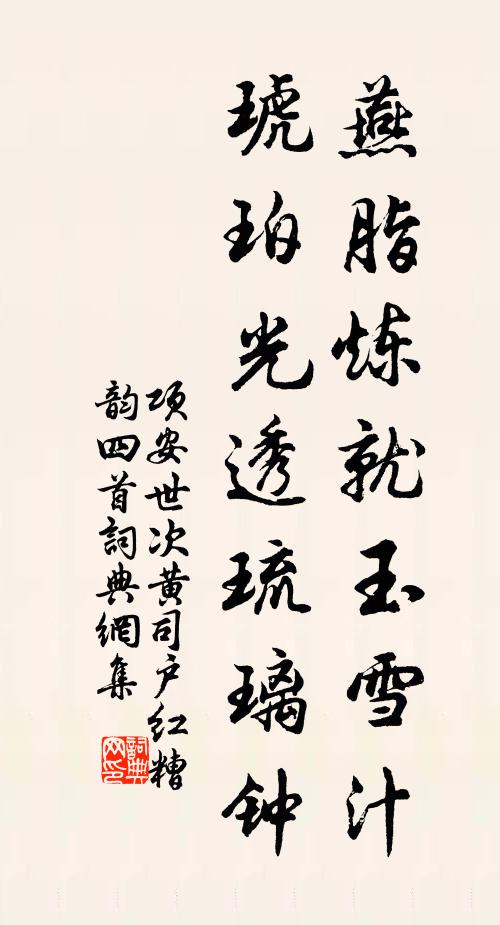 燕脂炼就玉雪汁
琥珀光透琉璃钟
项安世次黄司户红糟
韵四首詞典網集
詞典